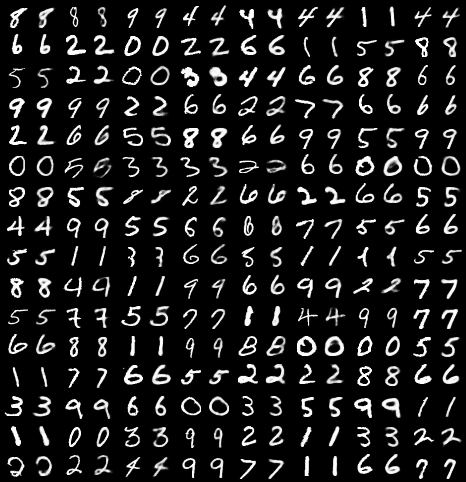 8 8 8 8 9 9 4 4 4 4 4 4 1 1 4 4
6 6 2 2 0 0 2 2 6 6 1 1 5 5 8 8
5 5 2 2 0 0 3 3 4 4 6 6 8 8 6 6
9 9 9 9 2 2 6 6 2 2 7 7 6 6 6 6
2 2 6 6 5 5 8 8 6 6 9 9 5 5 9 9
0 0 5 5 3 3 3 3 2 2 6 6 0 0 0 0
8 8 5 5 8 8 2 2 6 6 2 2 6 6 5 5
4 4 9 9 5 5 6 6 8 8 7 7 5 5 6 6
5 5 1 1 3 3 6 6 5 5 1 1 1 1 5 5
8 8 4 9 1 1 9 9 6 6 9 9 2 2 7 7
5 5 7 7 5 5 7 7 1 1 4 4 9 9 7 7
6 6 8 8 1 1 9 9 8 8 0 0 0 0 5 5
1 1 7 7 6 6 5 5 2 2 2 2 8 8 6 6
3 3 9 9 6 6 0 0 3 3 5 5 9 9 1 1
1 1 0 0 3 3 9 9 2 2 1 1 3 3 2 2
2 2 2 2 4 4 9 9 7 7 1 1 6 6 7 7